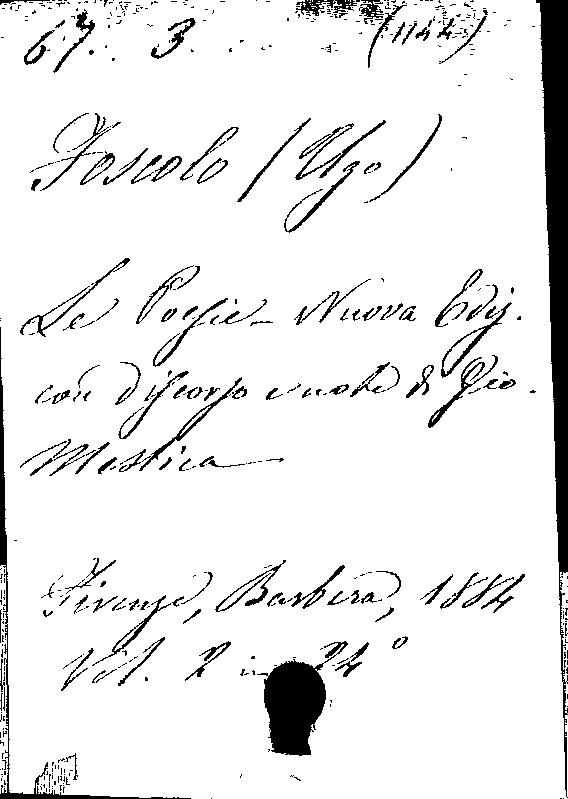 67. 3 (1144)
Foscolo (Ugo)
Le Poesie - Nuova Ediz.
con discorso e note di Gio.
Mestica
Firenze, Barbera, 1884
Vol. 2 in 24°